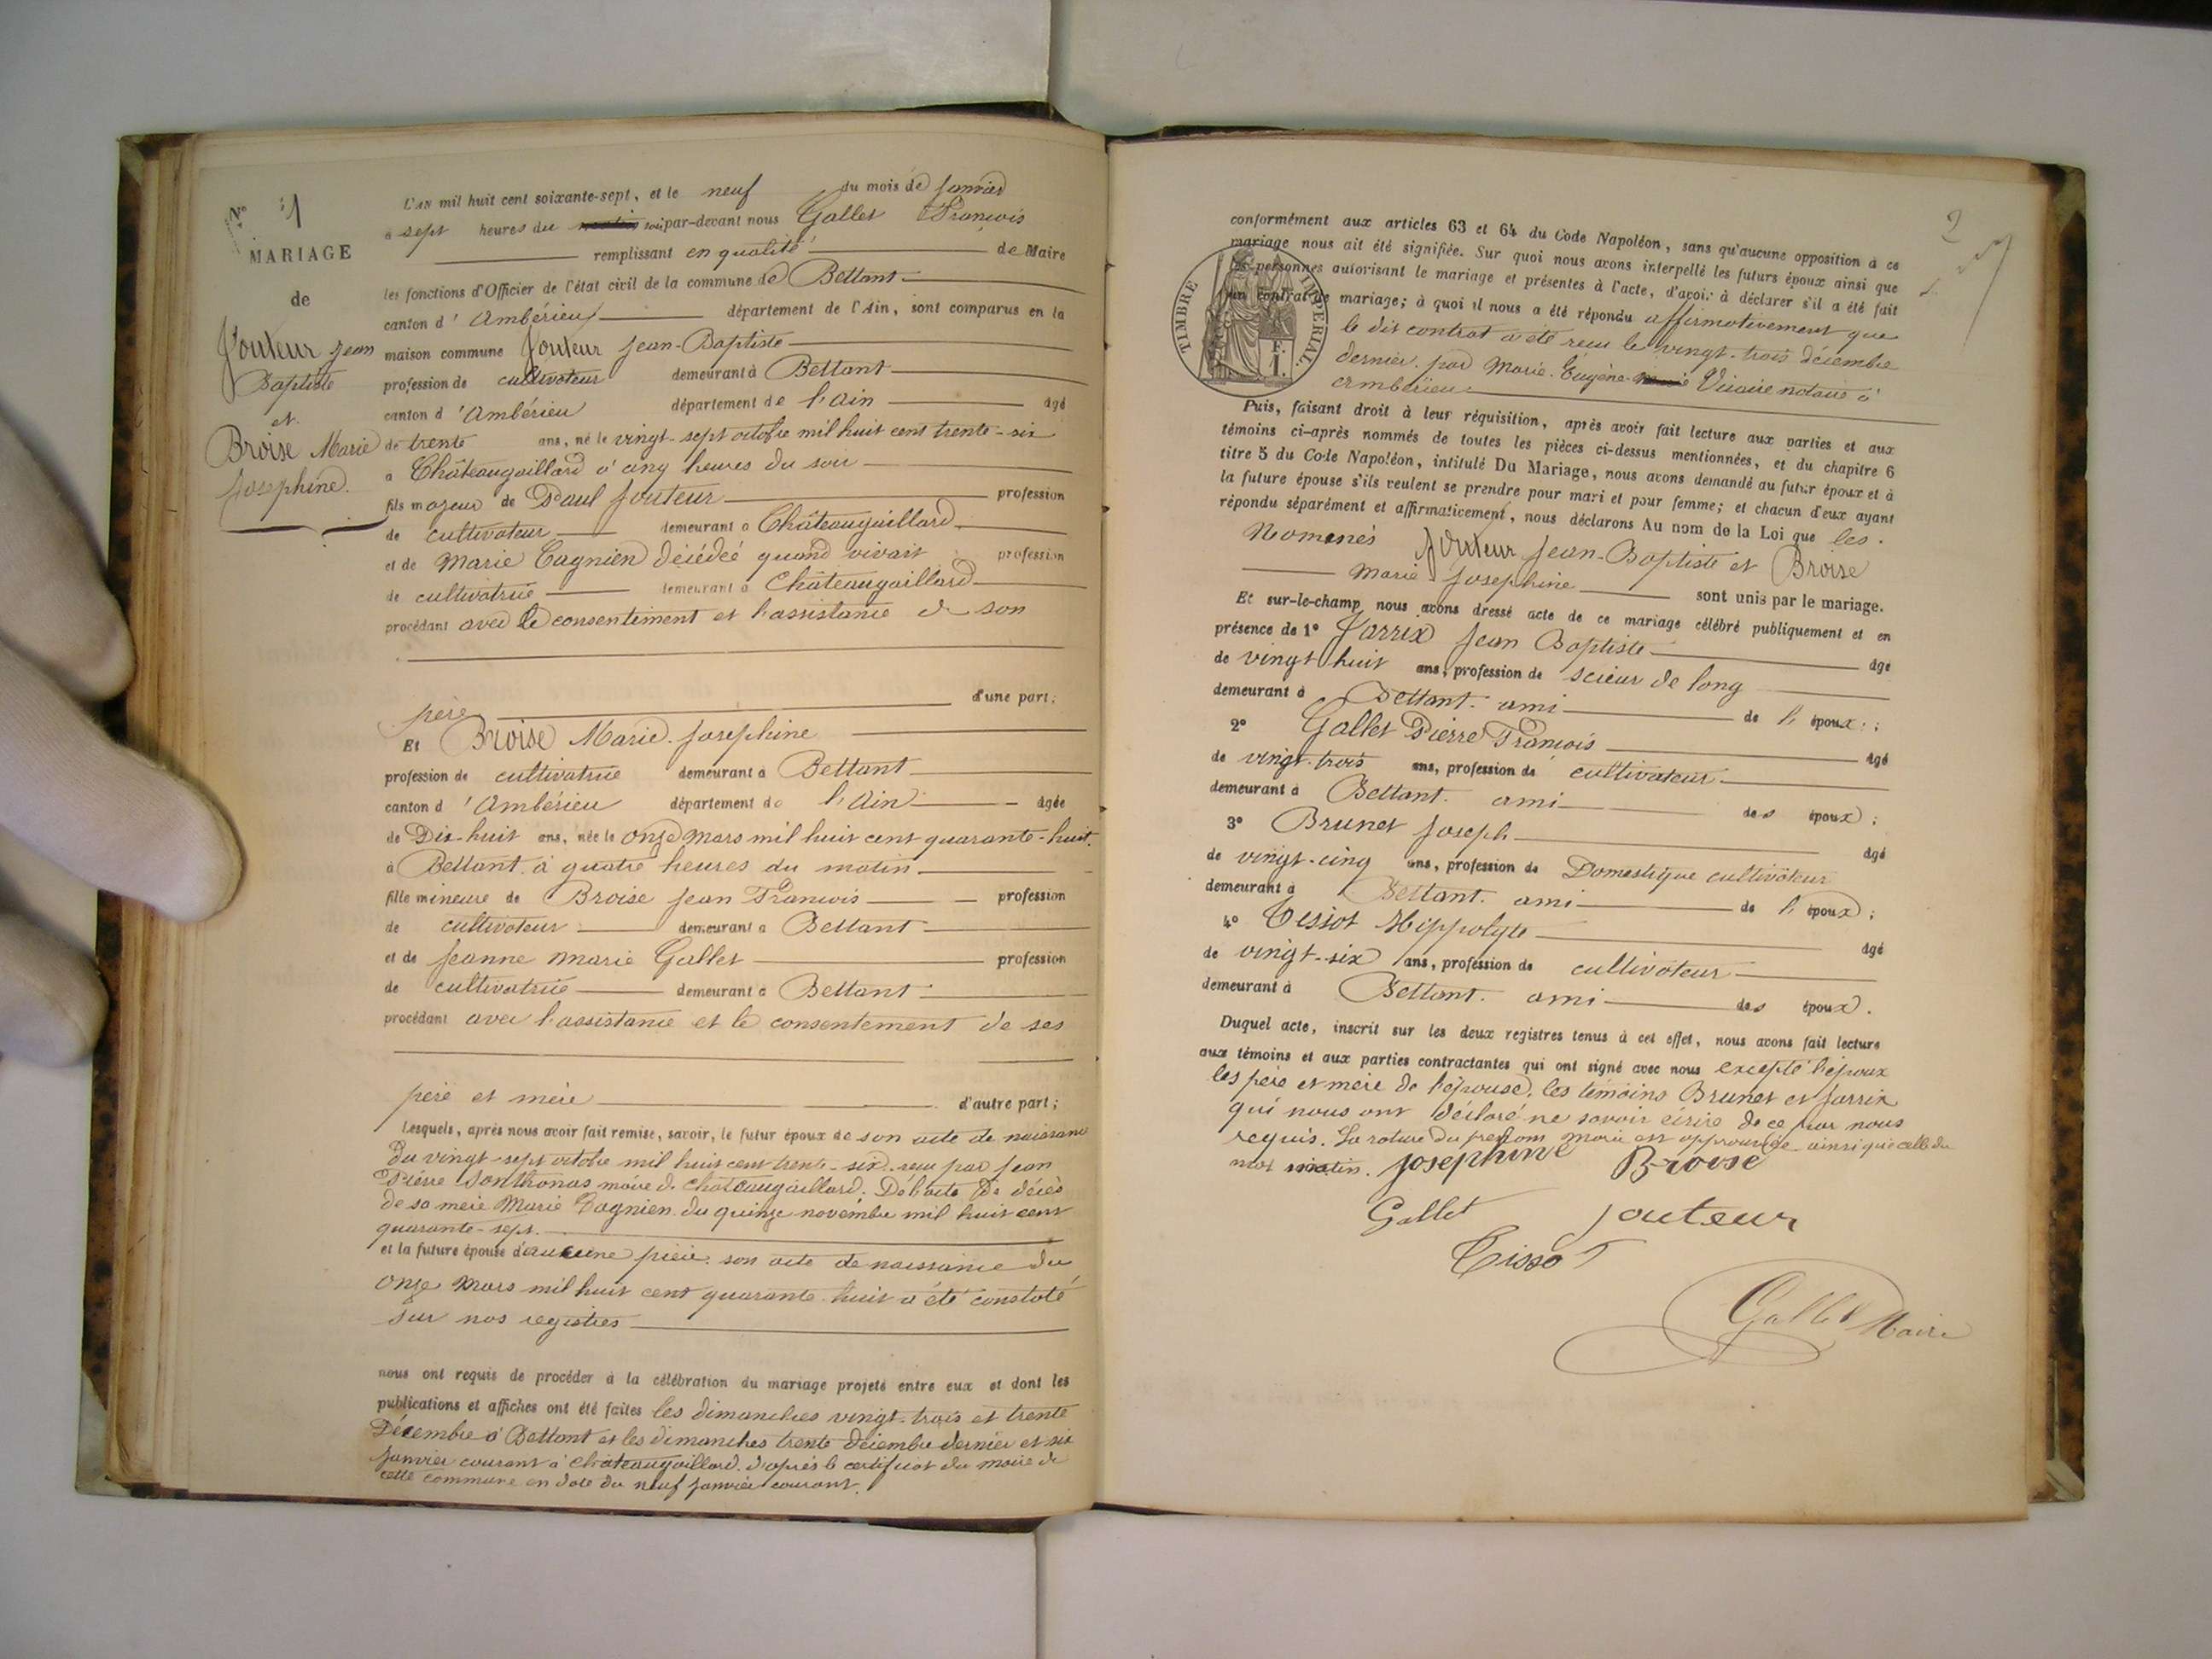 N° 1
MARIAGE
de
Jouteur Jean
Baptiste
et
Broise Marie
Josephine.
L'an mil huit cent soixante-sept, et le neuf du mois de Janvier
a sept heures du matin soir par-devant nous Gallet François
remplissant en qualité de Maire
les fonctions d'Officier de l'état civil de la commune de Bettant
canton d'Ambérieu département de l'Ain, sont comparus en la
maison commune Jouteur Jean-Baptiste
profession de cultivateur demeurant à Bettant
canton d'Ambérieu département de l'Ain âgé
de trente ans, né le vingt-sept octobre mil huit cent trente-six
a Châteaugaillard à cinq heures du soir
fils majeur de Paul Jouteur profession
de cultivateur demeurant a Châteaugaillard
et de Marie Cagnien décédée quand vivait profession
de cultivatrice demeurant a Châteaugaillard
procédant avec le consentiment et l'assistance de son
père d'une part;
Et Broise Marie Josephine
profession de cultivatrice demeurant a Bettant
canton d'Ambérieu département de l'Ain âgée
de Dix-huit ans, née le onze Mars mil huit cent quarante-huit.
à Bettant à quatre heures du matin
fille mineure de Broise Jean François profession
de cultivateur demeurant a Bettant
et de Jeanne Marie Gallet profession
de cultivatrice demeurant a Bettant
procédant avec l'assistance et le consentement de ses
père et mère d'autre part;
Lesquels, après nous avoir fait remise, savoir, le futur époux de son acte de naissance
du vingt-sept octobre mil huit cent trente-six reçu par Jean
Pierre Sonthonas maire de Châteaugaillard. De l'acte de décès
de sa mère Marie Cagnien du quinze novembre mil huit cent
quarante-sept.
et la future épouse d'aucune pièce son acte de naissance du
onze Mars mil huit cent quarante-huit a été constaté
sur nos registres
nous ont requis de procéder à la célébration du mariage projeté entre eux et dont les
publications et affiches ont été faites les dimanches vingt-trois et trente
Décembre à Bettant et les dimanches trente décembre dernier et six
Janvier courant à Châteaugaillard. d'après le certificat du maire de
cette commune en date du neuf Janvier courant.
2
conformément aux articles 63 et 64 du Code Napoléon, sans qu'aucune opposition à ce
mariage nous ait été signifiée. Sur quoi nous avons interpellé les futurs époux ainsi que
les personnes autorisant le mariage et présentes à l'acte, d'avoir à déclarer s'il a été fait
un contrat de mariage; à quoi il nous a été répondu affirmativement que
TIMBRE IMPERIAL.
F.
1.
le dit contrat a été reçu le vingt-trois décembre
dernier par Marie-Eugène Marie notaire à
Ambérieu.
Puis, faisant droit à leur réquisition, après avoir fait lecture aux parties et aux
témoins ci-après nommés de toutes les pièces ci-dessus mentionnées, et du chapitre 6
titre 5 du Code Napoléon, intitulé Du Mariage, nous avons demandé au futur époux et à
la future épouse s'ils veulent se prendre pour mari et pour femme; et chacun d'eux ayant
répondu séparément et affirmativement, nous déclarons Au nom de la Loi que les
Nommés Jouteur Jean-Baptiste et Broise
Marie Josephine sont unis par le mariage.
Et sur-le-champ nous avons dressé acte de ce mariage célébré publiquement et en
présence de 1° Jarrix Jean Baptiste âgé
de vingt huit ans, profession de scieur de long
demeurant à Bettant. ami de l'époux;
2° Gallet Pierre François âgé
de vingt-trois ans, profession de cultivateur
demeurant à Bettant. ami des époux;
3° Brunet Joseph âgé
de vingt-cinq ans, profession de Domestique cultivateur
demeurant à Bettant. ami de l'époux;
4° Tissot Hippolyte âgé
de vingt-six ans, profession de cultivateur
demeurant à Bettant. ami des époux.
Duquel acte, inscrit sur les deux registres tenus à cet effet, nous avons fait lecture
aux témoins et aux parties contractantes qui ont signé avec nous excepté l'époux
les père et mère de l'épouse, les témoins Brunet et Jarrix
qui nous ont déclaré ne savoir écrire de ce par nous
requis. La rature du prénom Marie est approuvée ainsi que celle du
mot matin. Josephine Broise
Gallet Jouteur
Tissot
Gallet Maire